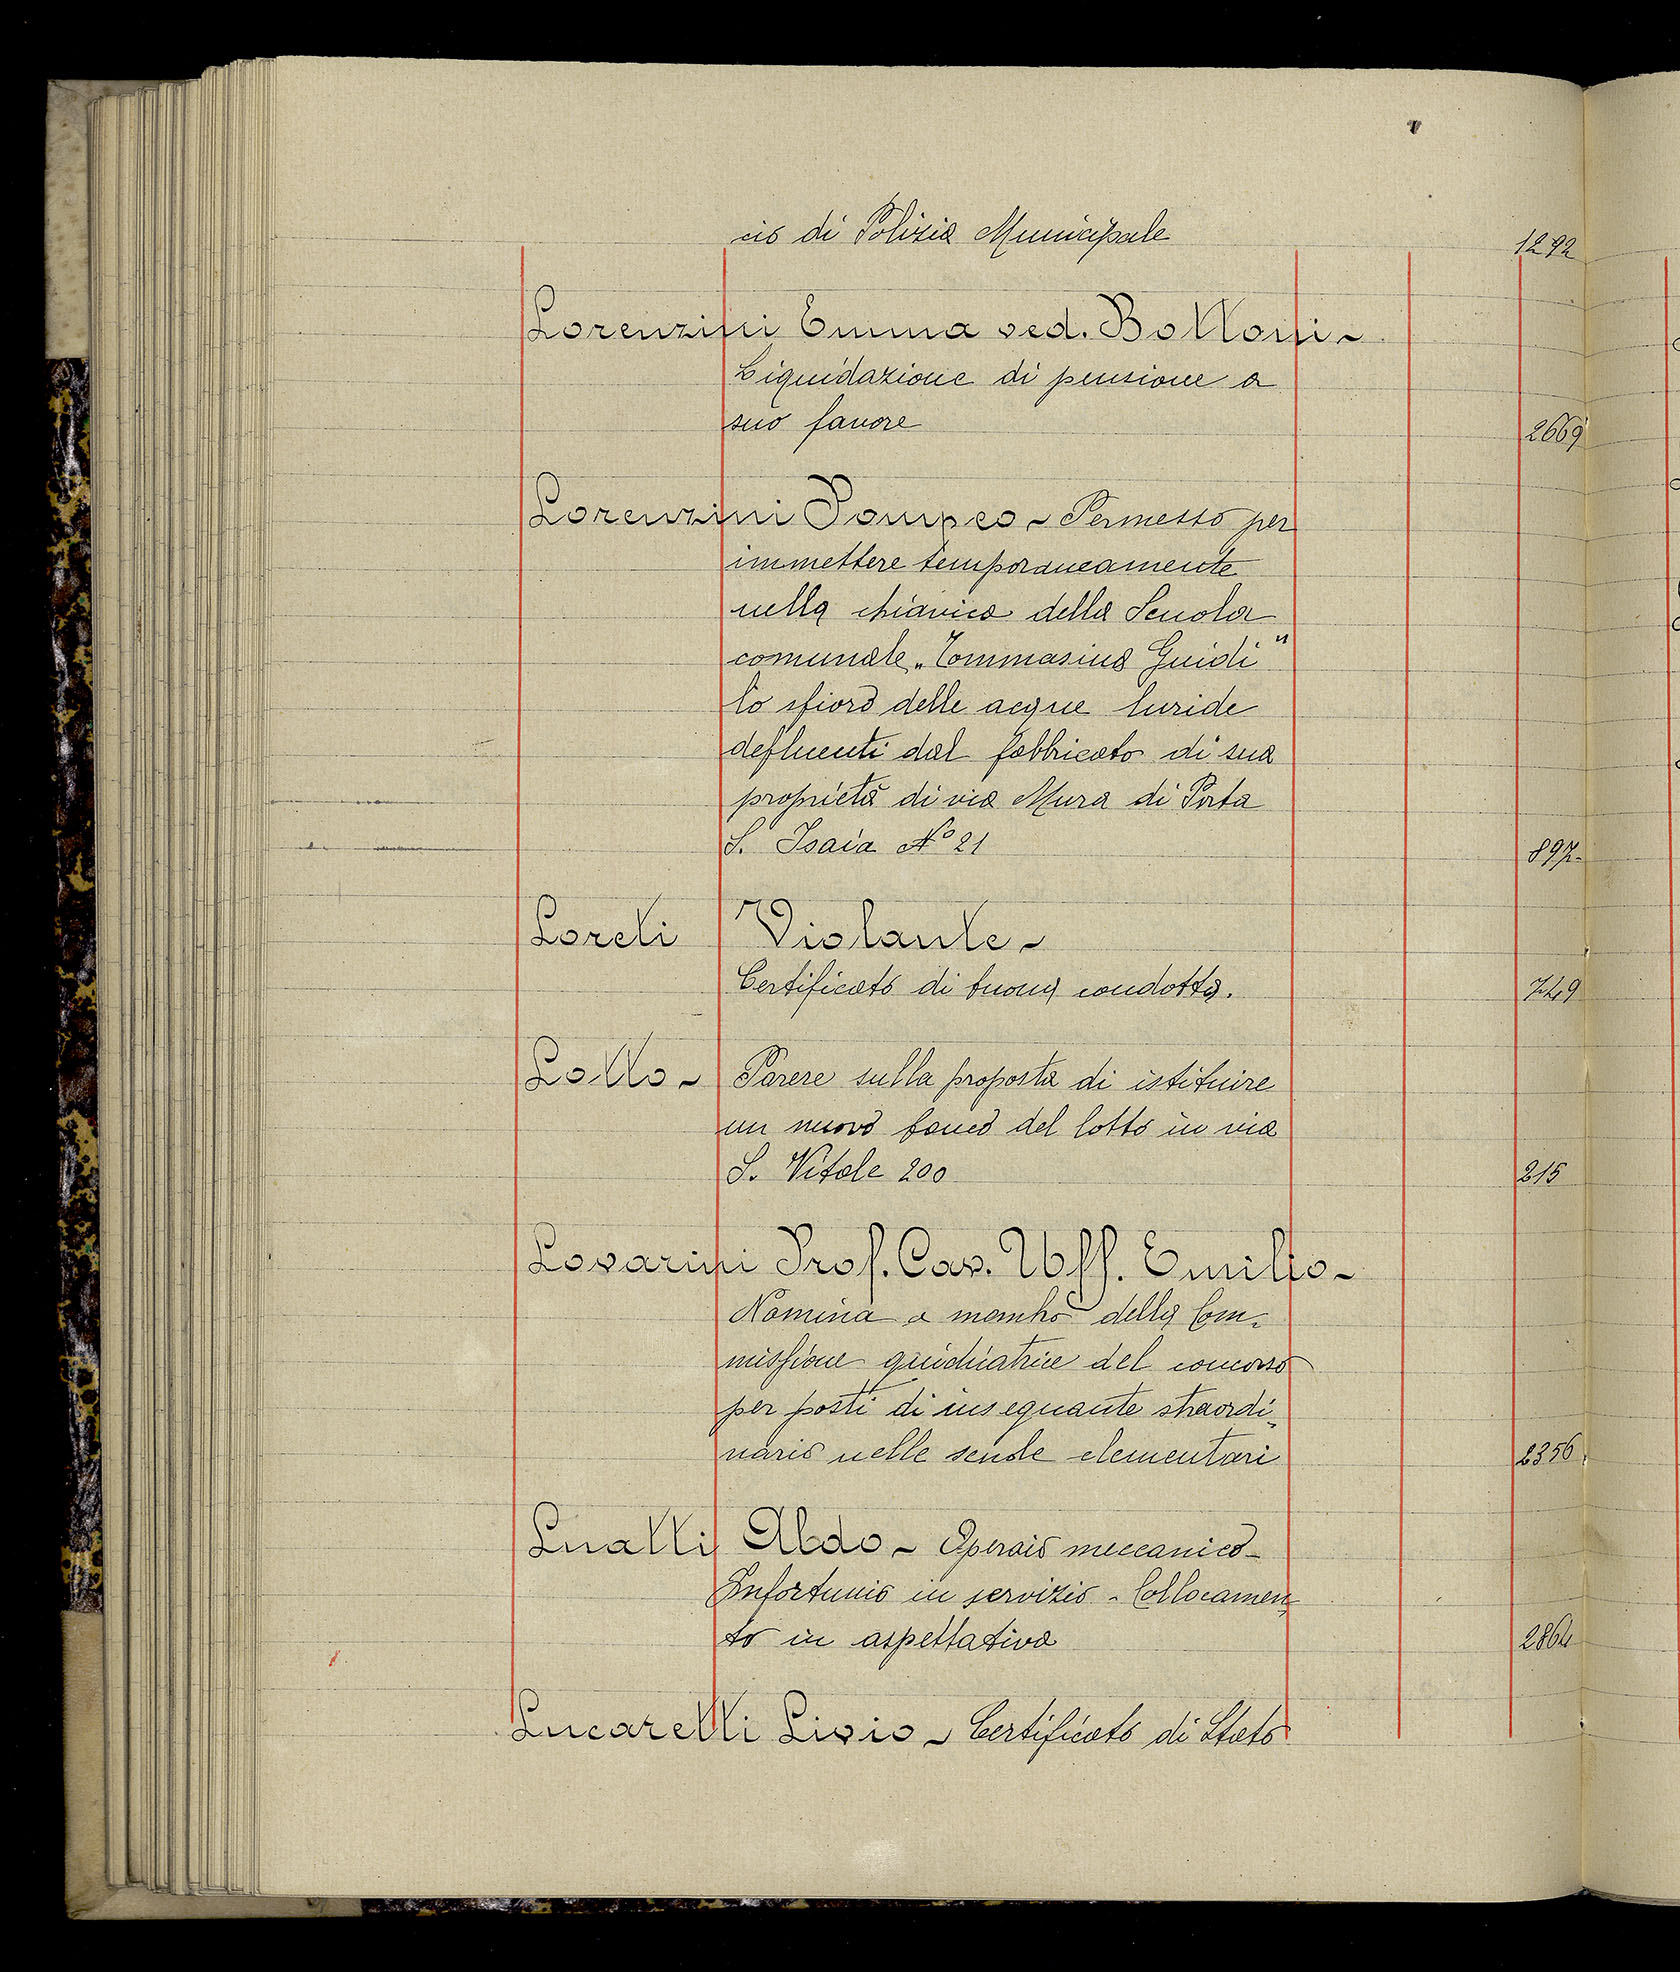 cio di Polizia Municipale 1292
Lorenzini Emma ved. Bottoni -
Liquidazione di pensione a
suo favore 2669
Lorenzini Pompeo - Permesso per
immettere temporaneamente
nella chiavica della Scuola
comunale „Tommasina Guidi"
lo sfioro delle acque luride
defluenti dal fabbricato di sua
proprietà di via Mura di Porta
S. Isaia Nº 21 897.
Loreti Violante -
Certificato di buona condotta. 749
Lotto - Parere sulla proposta di istituire
un nuovo banco del lotto in via
S. Vitale 200 215
Lovarini Prof. Cav. Uff. Emilio -
Nomina a membro della Com-
missione giudicatrice del concorso
per posti di insegnante straordi-
nario nelle scuole elementari 2356
Luatti Aldo - Operaio meccanico -
Infortunio in servizio - Collocamen-
to in aspettativa 2864
Lucarelli Livio - Certificato di Stato